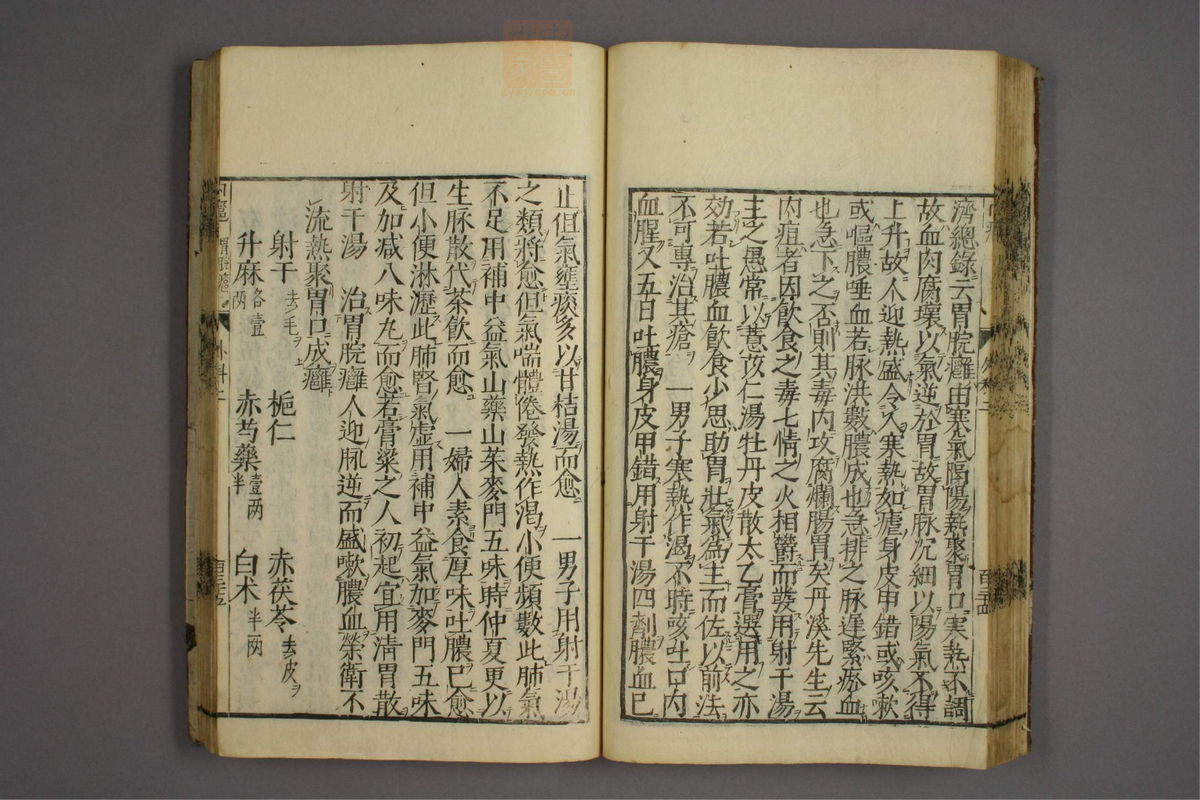 濟總錄云胃脘癰由寒氣隔陽熱聚胃口寒熱不調
故血肉腐壞以氣逆於胃故胃脉沉細以陽氣不得
上升故人迎熱盛令人寒熱如瘧身皮甲錯或咳嗽
或嘔膿唾血若脉洪數膿成也急排之脉遲緊瘀血
也急下之否則其毒内攻腐爛腸胃矣丹溪先生云
内疽者因飲食之毒七情之火相欝而發用射干湯
主之愚常以薏苡仁湯牡丹皮散太乙膏選用之亦
効若吐膿血飲食少思助胃壯氣爲主而佐以前法
不可專治其瘡　一男子寒熱作渴不時咳吐口内
血腥又五日吐膿身皮甲錯用射干湯四劑膿血已
止但氣壅痰多以甘桔湯而愈　一男子用射干湯
之類將愈但氣喘體倦發熱作渴小便頻數此肺氣
不足用補中益氣山藥山茱麥門五味時仲夏更以
生脉散代茶飲而愈　一婦人素食厚味吐膿已愈
但小便淋瀝此肺腎氣虛用補中益氣加麥門五味
及加减八味丸而愈若膏粱之人初起宜用清胃散
射干湯　治胃脘癰人迎脉逆而盛嗽膿血榮衛不
流熱聚胃口成癰
射干去毛　梔仁　赤茯苓去皮
升麻各壹兩　赤芍藥壹兩半　白术半兩